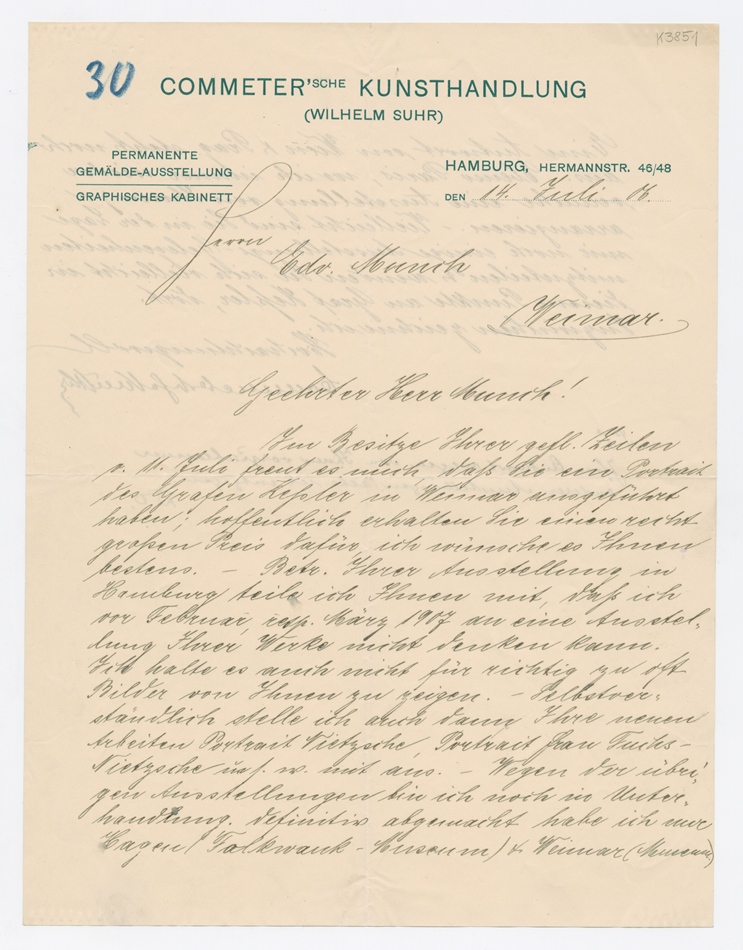 K3851
30 COMMETER'SCHE KUNSTHANDLUNG
(WILHELM SUHR)
PERMANENTE
GEMÄLDE-AUSSTELLUNG
GRAPHISCHES KABINETT
HAMBURG, HERMANNSTR. 46/48
DEN 14. Juli 06.
Herrn
Edv. Munch
Weimar.
Geehrter Herr Munch!
Im Besitze Ihrer gefl. Zeilen
v. 11. Juli freut es mich, daß Sie ein Portrait
des Grafen Keßler in Weimar ausgeführt
haben; hoffentlich erhalten Sie einen recht
großen Preis dafür, ich wünsche es Ihnen
bestens. – Betr. Ihrer Ausstellung in
Hamburg teile ich Ihnen mit, daß ich
vor Februar, resp. März 1907 an eine Ausstel-
lung Ihrer Werke nicht denken kann.
Ich halte es auch nicht für richtig zu oft
Bilder von Ihnen zu zeigen. – Selbstver-
ständlich stelle ich auch dann Ihre neuen
Arbeiten Portrait Nietzsche, Portrait frau Fuchs-
Nietzsche u. s. w. mit aus. – Wegen der übri-
gen Ausstellungen bin ich noch in Unter-
handlung, definitiv abgemacht habe ich nur
Hagen (Folkwank-Museum) & Weimar (Museum)